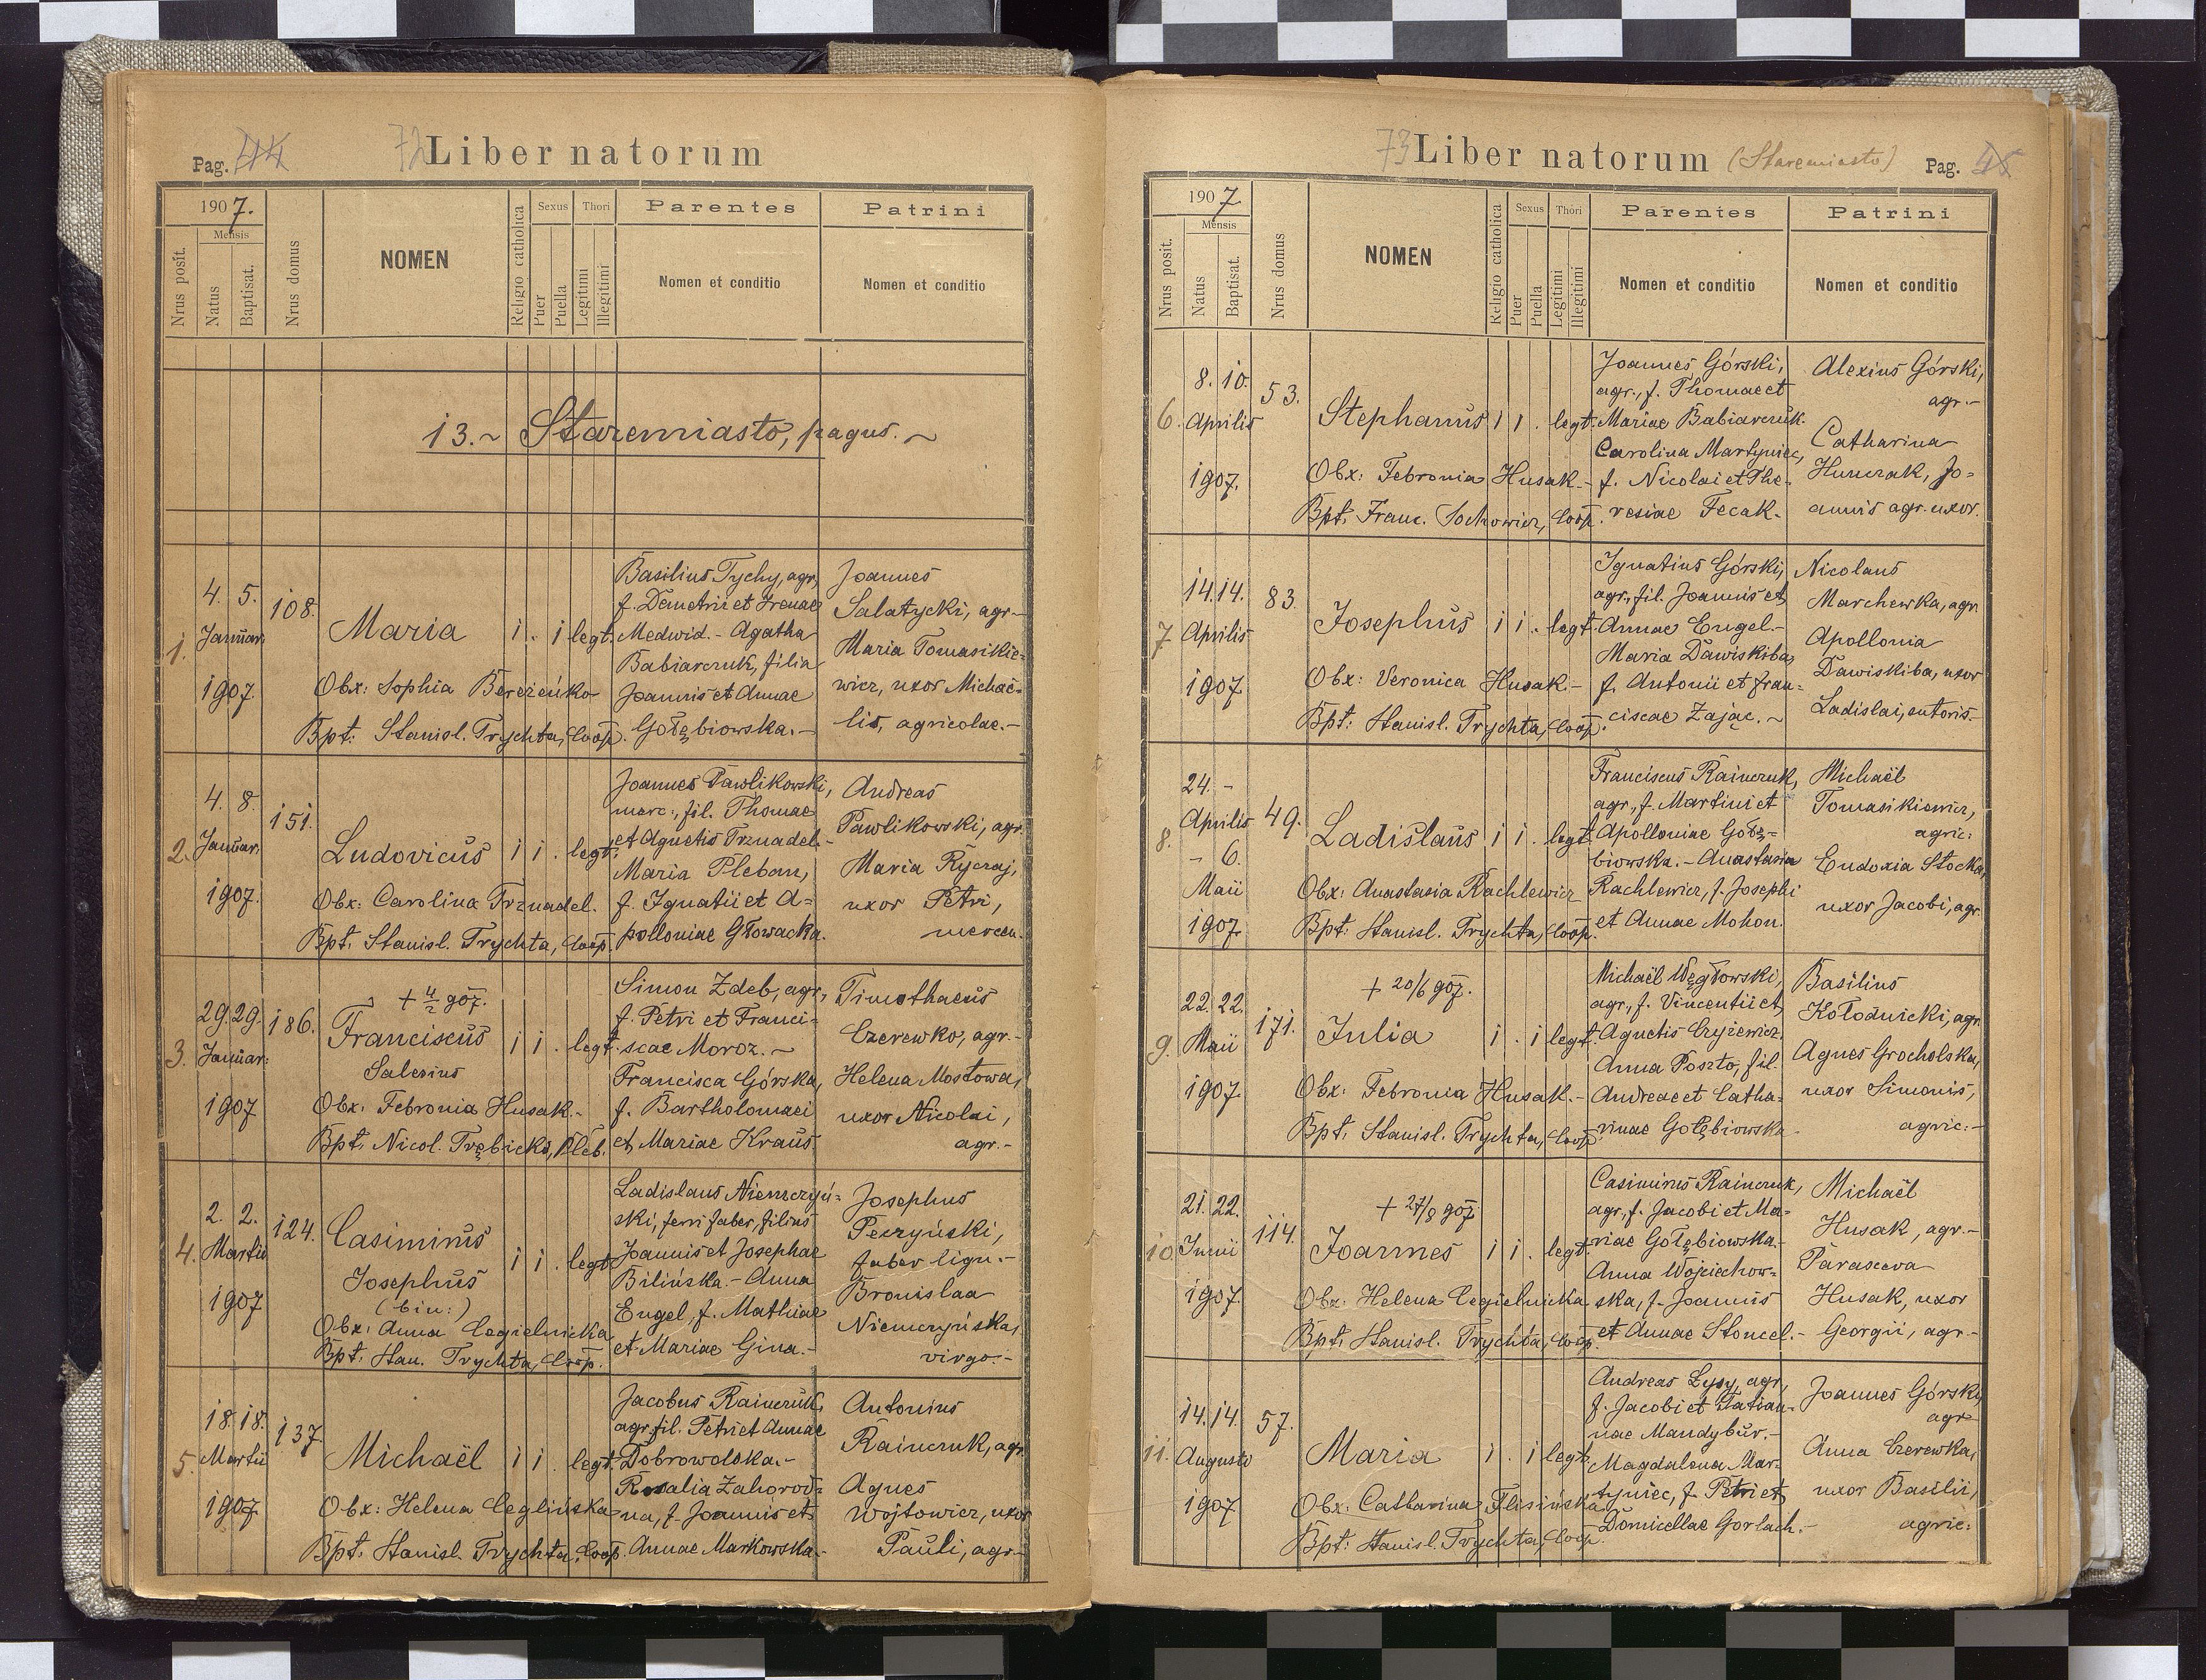 Pag. 44
72 Liber natorum
1907.
Nrus posit.
Mensis
Natus
Baptisat.
Nrus domus
NOMEN
Religio catholica
Sexus
Puer
Puella
Thori
Legitimi
Illegitimi
Parentes
Nomen et conditio
Patrini
Nomen et conditio
13.~ Staremiasto, pagus.~
1.
4. 5.
Januar:
1907.
108.
Maria
1 . 1 legt.
Obx: Sophia Bereżeńko
Bpt: Stanisl. Trychta, Coop.
Basilius Tychy, agr,
f. Demetrii et Irenae
Medwid.- Agatha
Babiarczuk, filia
Joannis et Annae
Gołębiowska.-
Joannes
Salatycki, agr-
Maria Tomasikie=
wicz, uxor Michaë-
lis, agricolae.-
2.
4. 8.
Januar.
1907.
151.
Ludovicus
1 1 . legt.
Obx: Carolina Trznadel.
Bpt. Stanisl. Trychta, Coop.
Joannes Pawlikowski,
merc:, fil. Thomae
et Agnetis Trznadel.-
Maria Pleban,
f. Ignatii et A=
polloniae Głowacka.
Andreas
Pawlikowski, agr.
Maria Rycraj,
uxor Petri,
mercen.
3.
29. 29.
Januar:
1907
186.
+ 4/2 907.
Franciscus
Salesius
1 1 . legt.
Obx. Febronia Husak.-
Bpt. Nicol. Trębicki, Pleb.
Simon Zdeb, agr,
f. Petri et Franci=
scae Moroz.~
Francisca Górska,
f. Bartholomaei
et Mariae Kraus.
Timothaeus
Czerewko, agr.-
Helena Mostowa,
uxor Nicolai,
agr.-
4.
2. 2.
Martii
1907
124.
Casimirus
Josephus
(bin:)
1 1 . legt.
Obx: Anna Cegielnicka
Bpt. Stan. Trychta, Coop.
Ladislaus Niemczyń=
ski, ferri faber, filius
Joannis et Josephae
Bilińska.- Anna
Engel, f. Mathiae
et Mariae Gina.-
Josephus
Peczyński,
faber lign.-
Bronislaa
Niemczyńska,
virgo.-
5.
18. 18.
Martii
1907
137.
Michaël
1 1 . legt.
Obx: Helena Ceglińska
Bpt. Stanisl. Trychta, Coop.
Jacobus Rainczuk,
agr, fil. Petri et Annae
Dobrowolska.-
Rosalia Zahorod=
na, f. Joannis et
Annae Markowska.-
Antonius
Rainczuk, agr.
Agnes
Wojtowicz, uxor
Pauli, agr.-
73 Liber natorum (Staremiasto)
Pag. 45
1907
Nrus posit.
Mensis
Natus
Baptisat.
Nrus domus
NOMEN
Religio catholica
Sexus
Puer
Puella
Thori
Legitimi
Illegitimi
Parentes
Nomen et conditio
Patrini
Nomen et conditio
6.
8. 10.
Aprilis
1907.
53.
Stephanus
1 1 . legt.
Obx: Febronia Husak.-
Bpt. Franc. Sochowicz, Coop.
Joannes Górski,
agr., f. Thomae et
Mariae Babiarczuk.
Carolina Martyniec,
f. Nicolai et The-
resiae Fecak-
Alexius Górski,
agr.-
Catharina
Hunczak, Jo=
annis agr. uxor.
7
14. 14.
Aprilis
1907.
83.
Josephus
1 1 . legt.
Obx: Veronica Husak.-
Bpt: Stanisl. Trychta, Coop.
Ignatius Górski,
agr., fil. Joannis et
Annae Engel.-
Maria Dawiskiba,
f. Antonii et Fran=
ciscae Zając.~
Nicolaus
Marchewka, agr.
Apollonia
Dawiskiba, uxor
Ladislai, sutoris.-
8.
24. -
Aprilis
- 6.
Maii
1907
49.
Ladislaus
1 1 . legt.
Obx: Anastasia Rachlewicz
Bpt: Stanisl. Trychta, Coop.
Franciscus Rainczuk,
agr., f. Martini et
Apolloniae Gołę=
biowska.- Anastasia
Rachlewicz, f. Josephi
et Annae Mohon.
Michaël
Tomasikiewicz,
agric:
Eudoxia Stocka,
uxor Jacobi, agr.
9.
22. 22.
Maii
1907.
171.
+ 20/6 907.
Julia
1 . 1 legt.
Obx: Febronia Husak.-
Bpt. Stanisl. Trychta, Coop.
Michaël Węgłowski,
agr., f. Vincentii et
Agnetis Czyżewicz.
Anna Poszto, fil.
Andreae et Catha=
rinae Gołębiowska-
Basilius
Kołodnicki, agr.
Agnes Grocholska,
uxor Simonis,
agric:-
10.
21. 22.
Junii
1907.
114.
+ 27/8 907
Joannes
1 1 . legt.
Obx: Helena Cegielnicka
Bpt. Stanisl. Trychta, Coop.
Casimirus Rainczuk,
agr., f. Jacobi et Ma-
riae Gołębiowska.-
Anna Wojciechow=
ska, f. Joannis
et Annae Stoncel.-
Michaël
Husak, agr.-
Parasceva
Husak, uxor
Georgii, agr.-
11.
14. 14.
Augusto
1907
57.
Maria
1 . 1 legt.
Obx: Catharina Flisińska
Bpt: Stanisl. Trychta, Coop.
Andreas Łysy, agr,
f. Jacobi et Tatian-
nae Mandybur.-
Magdalena Mar-
tyniec, f. Petri et
Domicellae Gorlach.-
Joannes Górski,
agr-
Anna Czerewka,
uxor Basilii,
agric: